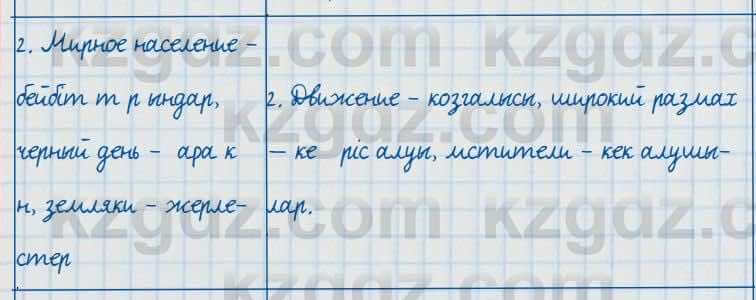 2. Мирное население –
бейбіт т р ындар,
черный день – ара к
н, земляки – жерле-
стер
2. Движение – козгалысы, широкий размах
– ке ріс алуы, мстители – кек алушы-
лар.
kzgdz.com